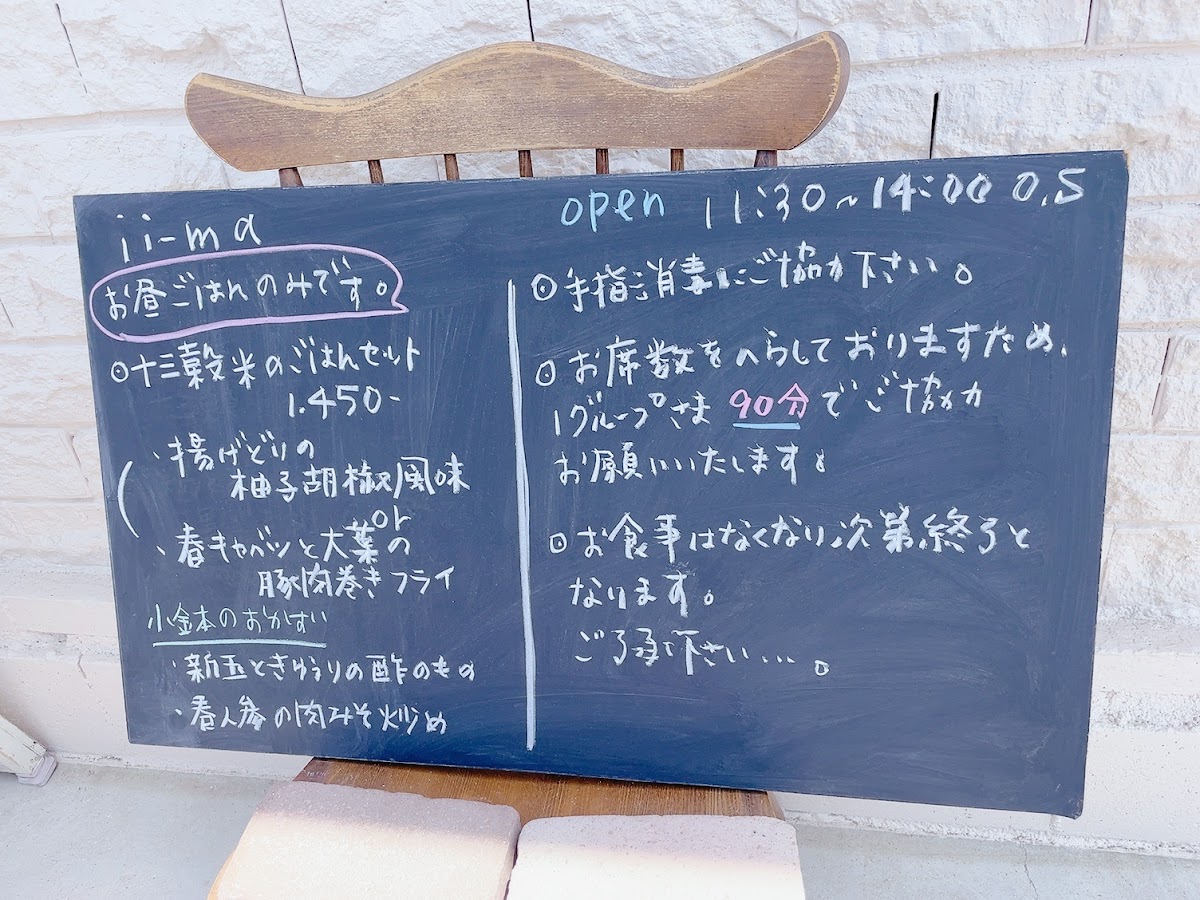 ii-ma
open 11:30~14:00 O.S
お昼ごはんのみです。
◎十三穀米のごはんセット
1.450-
・揚げどりの
柚子胡椒風味
or
・春キャベツと大葉の
豚肉巻きフライ
小鉢のおかず
・新玉ときゅうりの酢のもの
・春人参の肉みそ炒め
◎手指消毒にご協力下さい。
◎お席数をへらしておりますため、
1グループさま90分でご協力
お願いいたします。
◎お食事はなくなり次第終了と
なります。
ご了承下さい...。